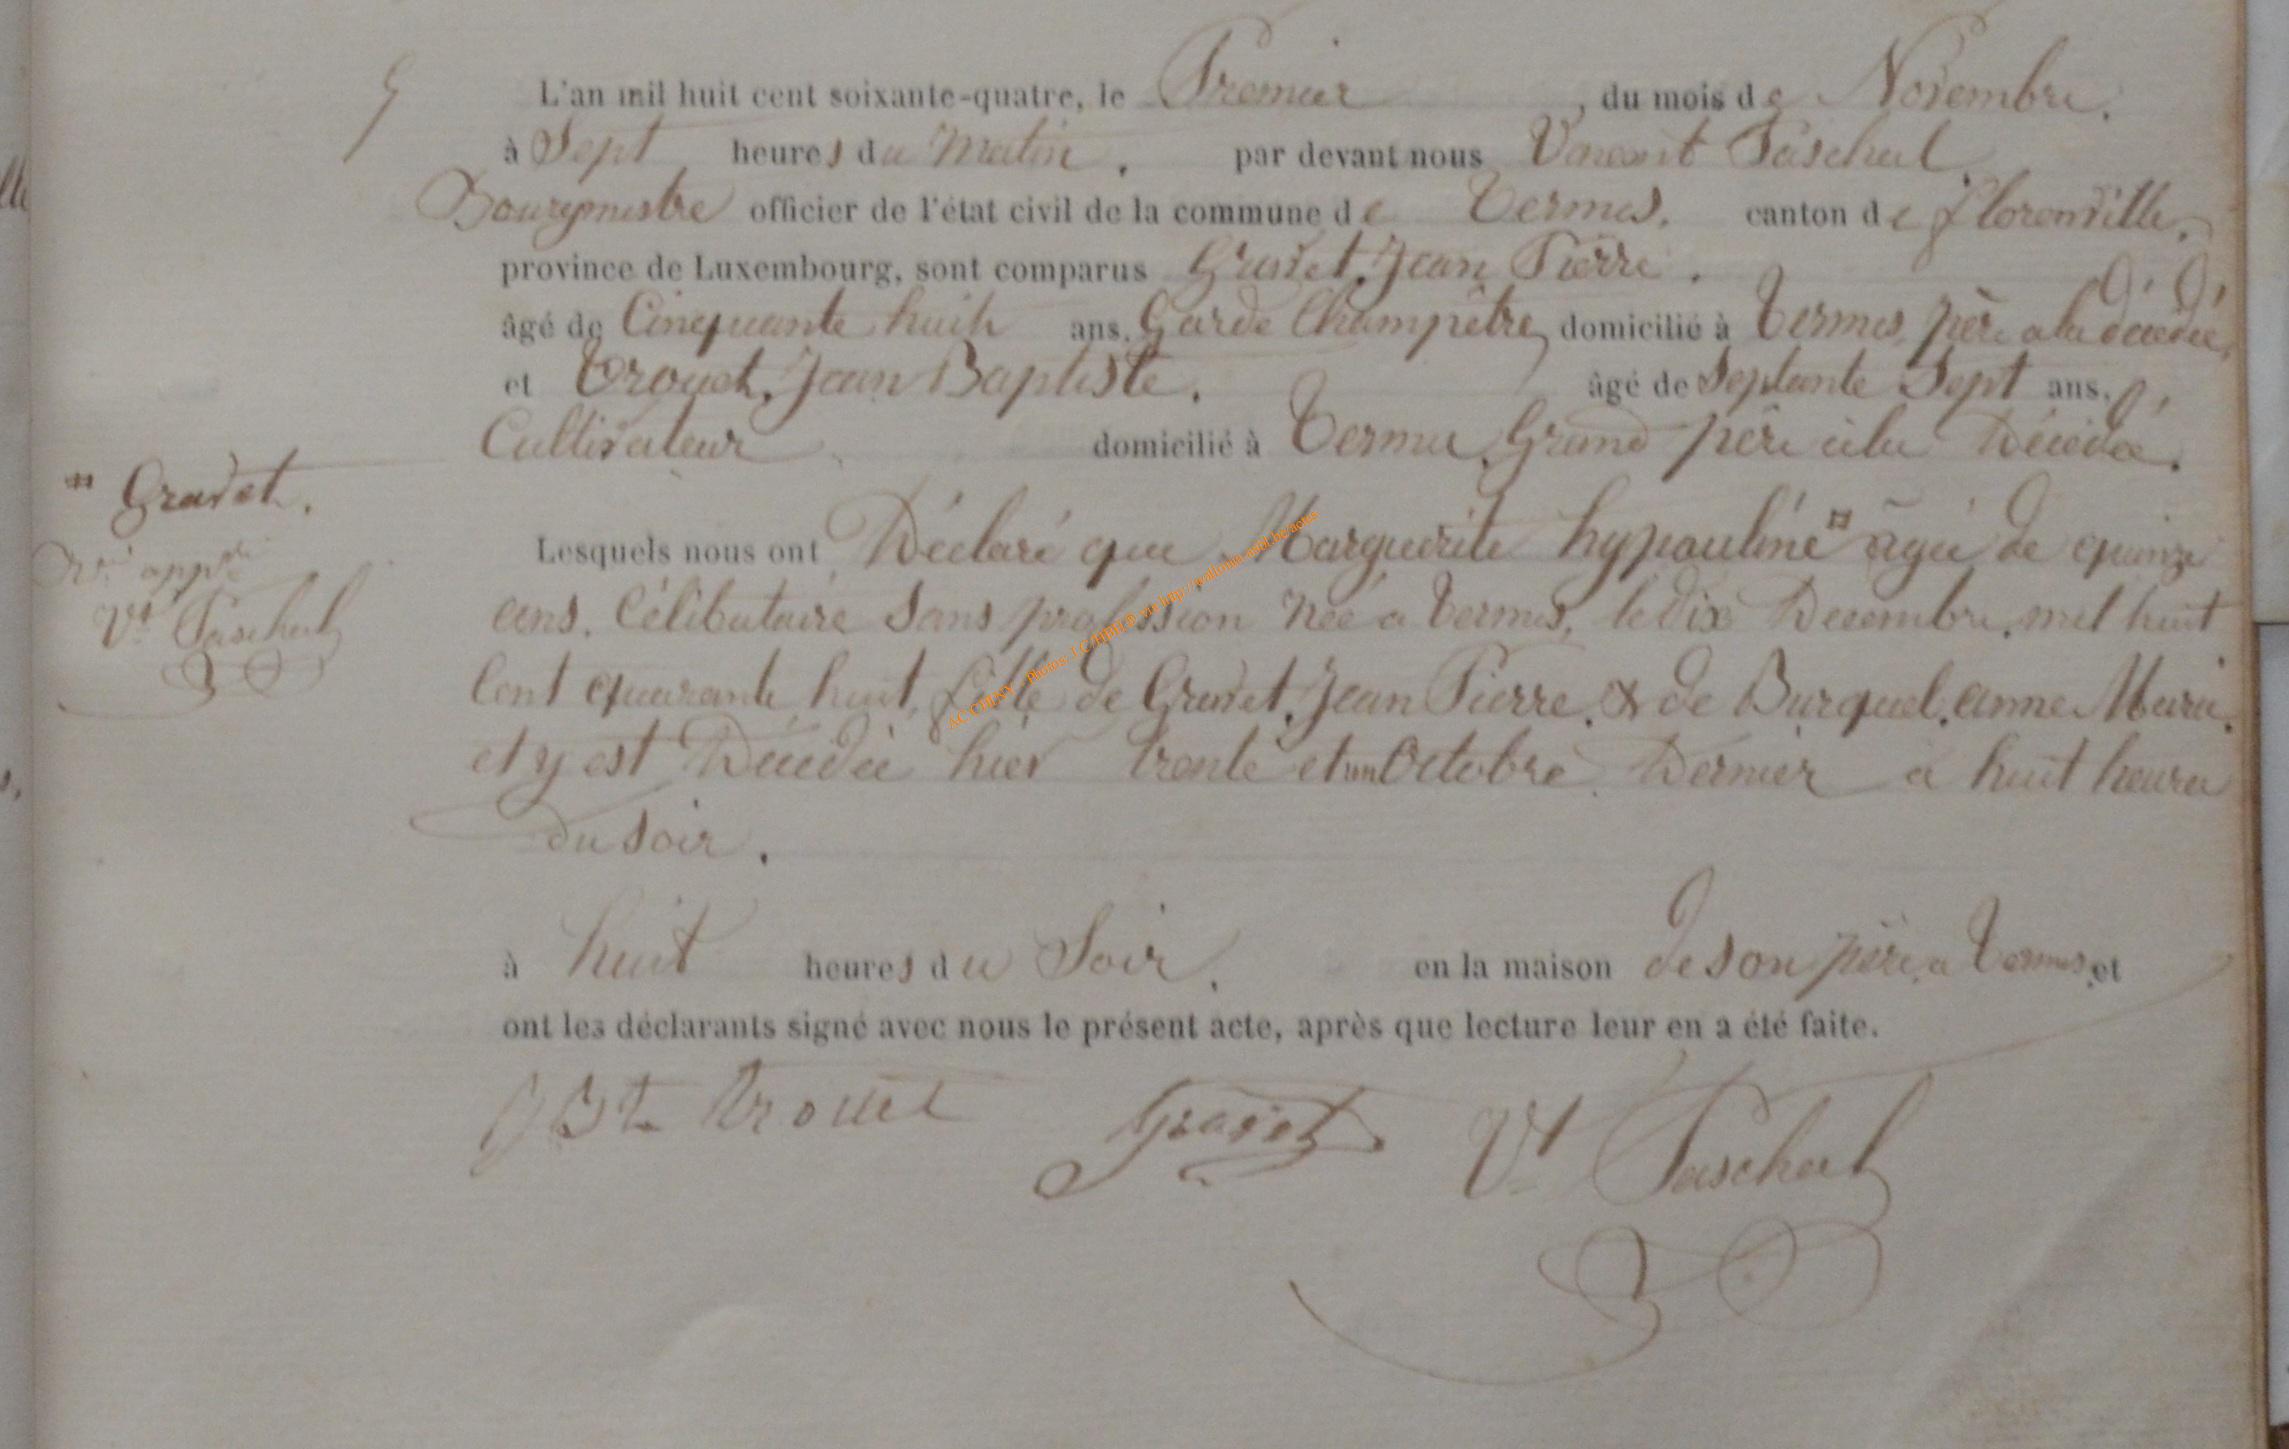 9
L'an mil huit cent soixante-quatre, le Premier, du mois de Novembre.
à Sept heures du Matin. par devant nous Vincent Paschal,
Bourgmestre officier de l'état civil de la commune de Termes. canton de florenville.
province de Luxembourg, sont comparus Gravet. Jean Pierre.
âgé de Cinquante huit ans. Garde Champêtre domicilié à Termes, père a la décédée,
et Trouet. Jean Baptiste. âgé de Septante Sept ans.
Cultivateur domicilié à Termes Grand père à la Décédée.
¤ Gravet.
appé
Vt Paschal
Lesquels nous ont Déclaré que Marguerite hypauline¤ agée de quinze
ans. Célibataire Sans profession Née a Termes, le dix Decembre. mil huit
Cent quarante huit, fille de Gravet. Jean Pierre. & de Burquel. anne Marie.
et y est Décédée hier trente et un Octobre Dernier a huit heures
du Soir.
à huit heures du Soir. en la maison de son père a Termes et
ont les déclarants signé avec nous le présent acte, après que lecture leur en a été faite.
J Bte trouet Gravet Vt Paschal
AC CHINY - Photos: LC/HDH® sur http://wallonia-asbl.be/actes